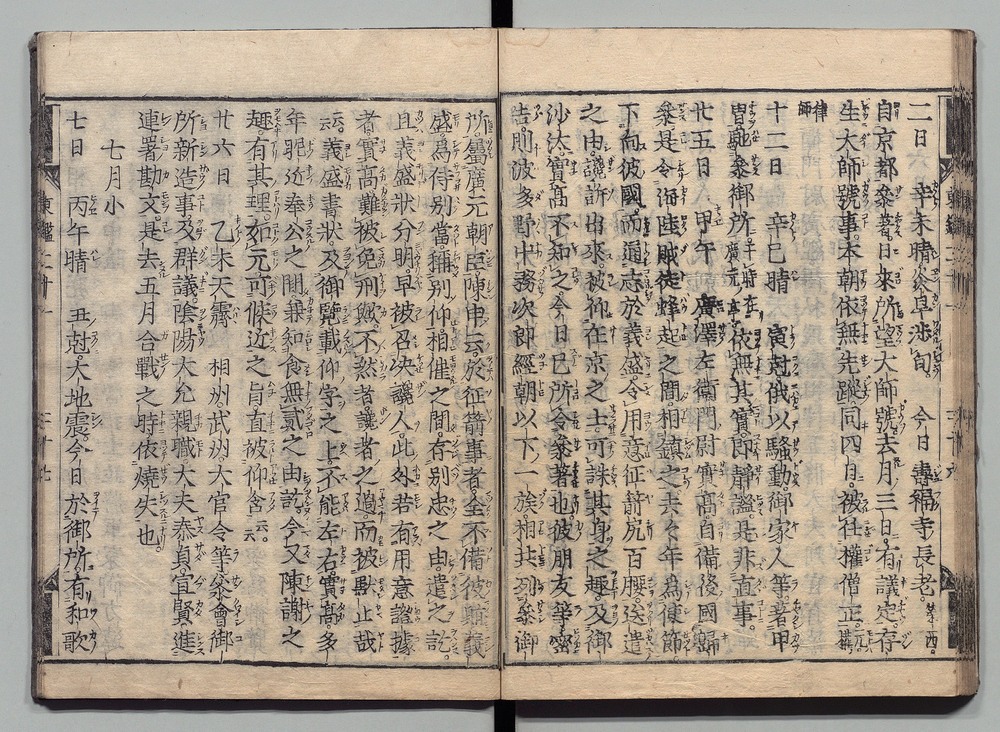 二日 辛未晴炎旱渉旬 今日壽福寺長老
自京都參著日來所望大師號去月三日有議定存
生大師號事本朝依無先蹤同四日被任權僧正元
律師
十二日 辛巳晴 寅尅俄以騷動御家人等著甲
冑馳參御所廣元 依無其實即靜謐是非直事
廿五日 甲午 廣澤左衛門尉實高自備後國歸
參是令海陸賊徒蜂起之間相鎮之去々年爲使節
下向彼國而通志於義盛令用意征箭尻百腰送遣
之由讒訴出來被仰在京之士可誅其身之趣及御
沙汰實高不知之今日已所令參著也彼朋友等密
告則波多野中務次郎經朝以下一族相共列參御
所屬廣元朝臣陳申云於征箭事者全不備彼賄義
盛爲待別當稱別仰相催之間存別忠之由遣之訖
且義盛狀分明早被召决讒人此外若有用意證據
者實高難被免刑歟不然者讒者之過而被默止哉
云々義盛書狀及御覽載仰字之上不能左右實高多
年昵近奉公之間兼知食無貳之由訖今又陳謝之
趣有其理如元可傑近之旨直被仰含云々
廿六日 乙未天霽 相州武州大官令等參會御
所新造事及群議陰陽大允親職大夫泰貞宣賢進
連署勘文是去五月合戰之時依燒失也
七月小
七日 丙午晴 丑尅大地震今日於御所有和歌
東鑑二十一